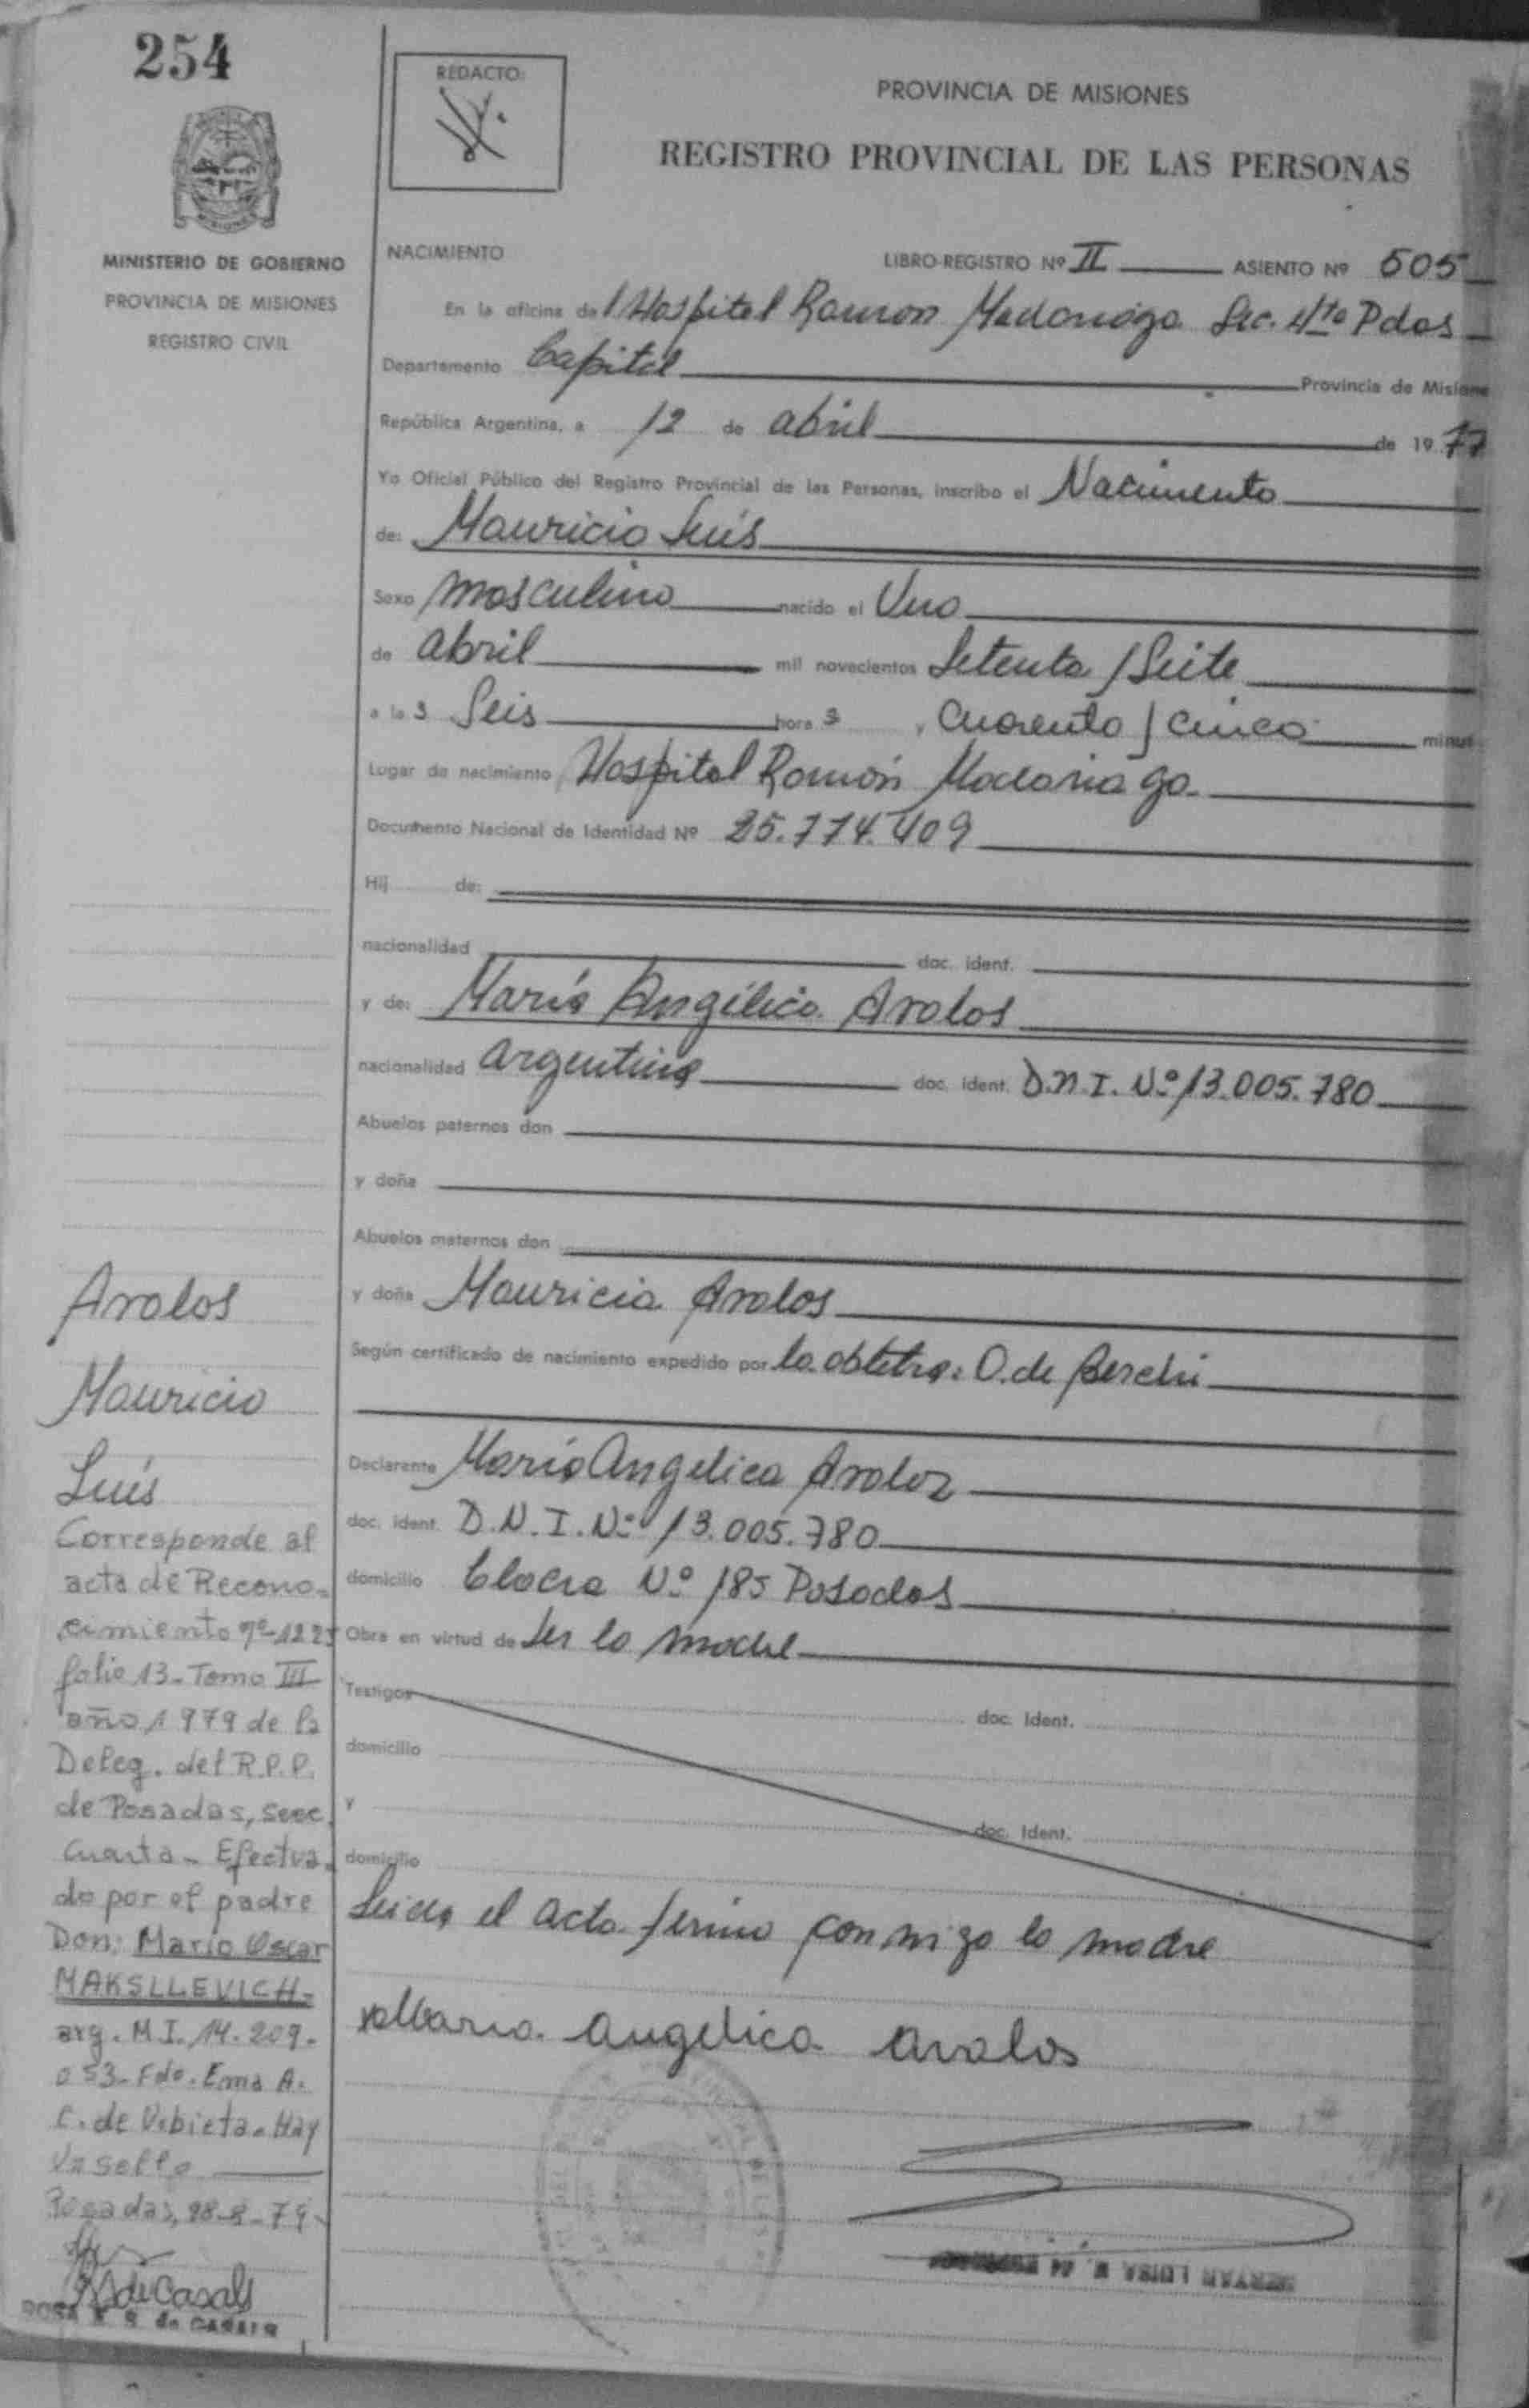 254
REDACTO:
PROVINCIA DE MISIONES
REGISTRO PROVINCIAL DE LAS PERSONAS
MINISTERIO DE GOBIERNO
PROVINCIA DE MISIONES
REGISTRO CIVIL
NACIMIENTO
LIBRO-REGISTRO Nº II ASIENTO Nº 505
En la oficina del Hospital Ramon Madariaga Sec. 4ta Pdas
Departamento Capital Provincia de Misione
República Argentina, a 12 de abril de 1977
Yo Oficial Público del Registro Provincial de las Personas, inscribo el Nacimiento
de: Mauricio Luís
Sexo masculino nacido el Uno
de abril mil novecientos Setenta / Siete
a las Seis horas y Cuarenta / cinco minut
Lugar de nacimiento Hospital Ramón Madariaga
Documento Nacional de Identidad Nº 25.774.409
Hij de:
nacionalidad doc. ident.
y de: María Angélica Avalos
nacionalidad argentina doc. ident. D.N.I. Nº 13.005.780
Abuelos paternos don
y doña
Abuelos maternos don
y doña Mauricia Avalos
Según certificado de nacimiento expedido por la obstetra: O. de
Declarante María Angelica Avaloz
doc. ident. D.N.I. Nº 13.005.780
domicilio Nº 185 Posadas
Obra en virtud de ser la madre
Testigos doc. Ident.
domicilio
y doc. Ident.
domicilio
Leida el acta firma conmigo la madre
Maria angelica avalos
Avalos
Mauricio
Luís
Corresponde al
acta de Recono-
cimiento nº 1225
folio 13 - Tomo III
año 1979 de la
Deleg. del R.P.P.
de Posadas, secc
Cuarta - Efectua-
do por el padre
Don: Mario Oscar
MAKSLLEVICH -
arg. M.I. 14.209.
053 - Fdo. Ema A.
C. de Vibieta - Hay
Un sello
Posadas, 28-8-79
de Casals
ROSA de CASALS